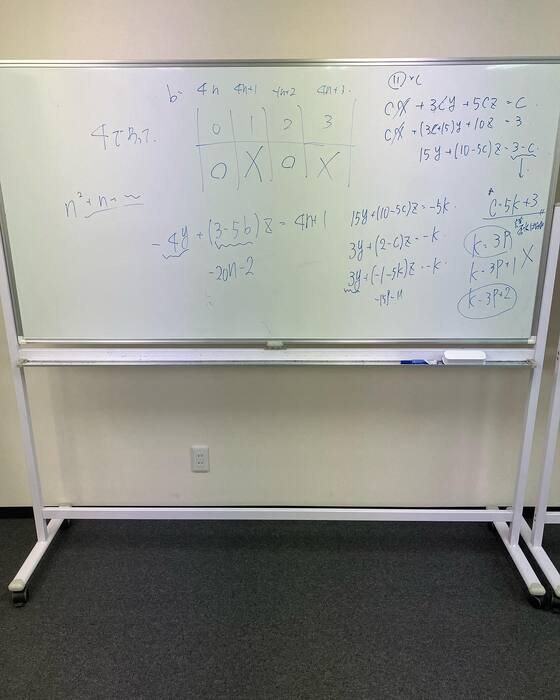 b= 4n 4n+1 4n+2 4n+3
0 1 2 3
O X O X
4で
n²+n+~
-4y+(3-5b)z=4n+1
-20n-2
⑪×c
cx+3cy+5cz=c
cx+(3c+15)y+10z=3
15y+(10-5c)z=3-c
c=5k+3
15y+(10-5c)z=-5k
3y+(2-c)z=-k
3y+(-1-5k)z=-k
-15p-11
k=3p
k=3p+1 X
k=3p+2